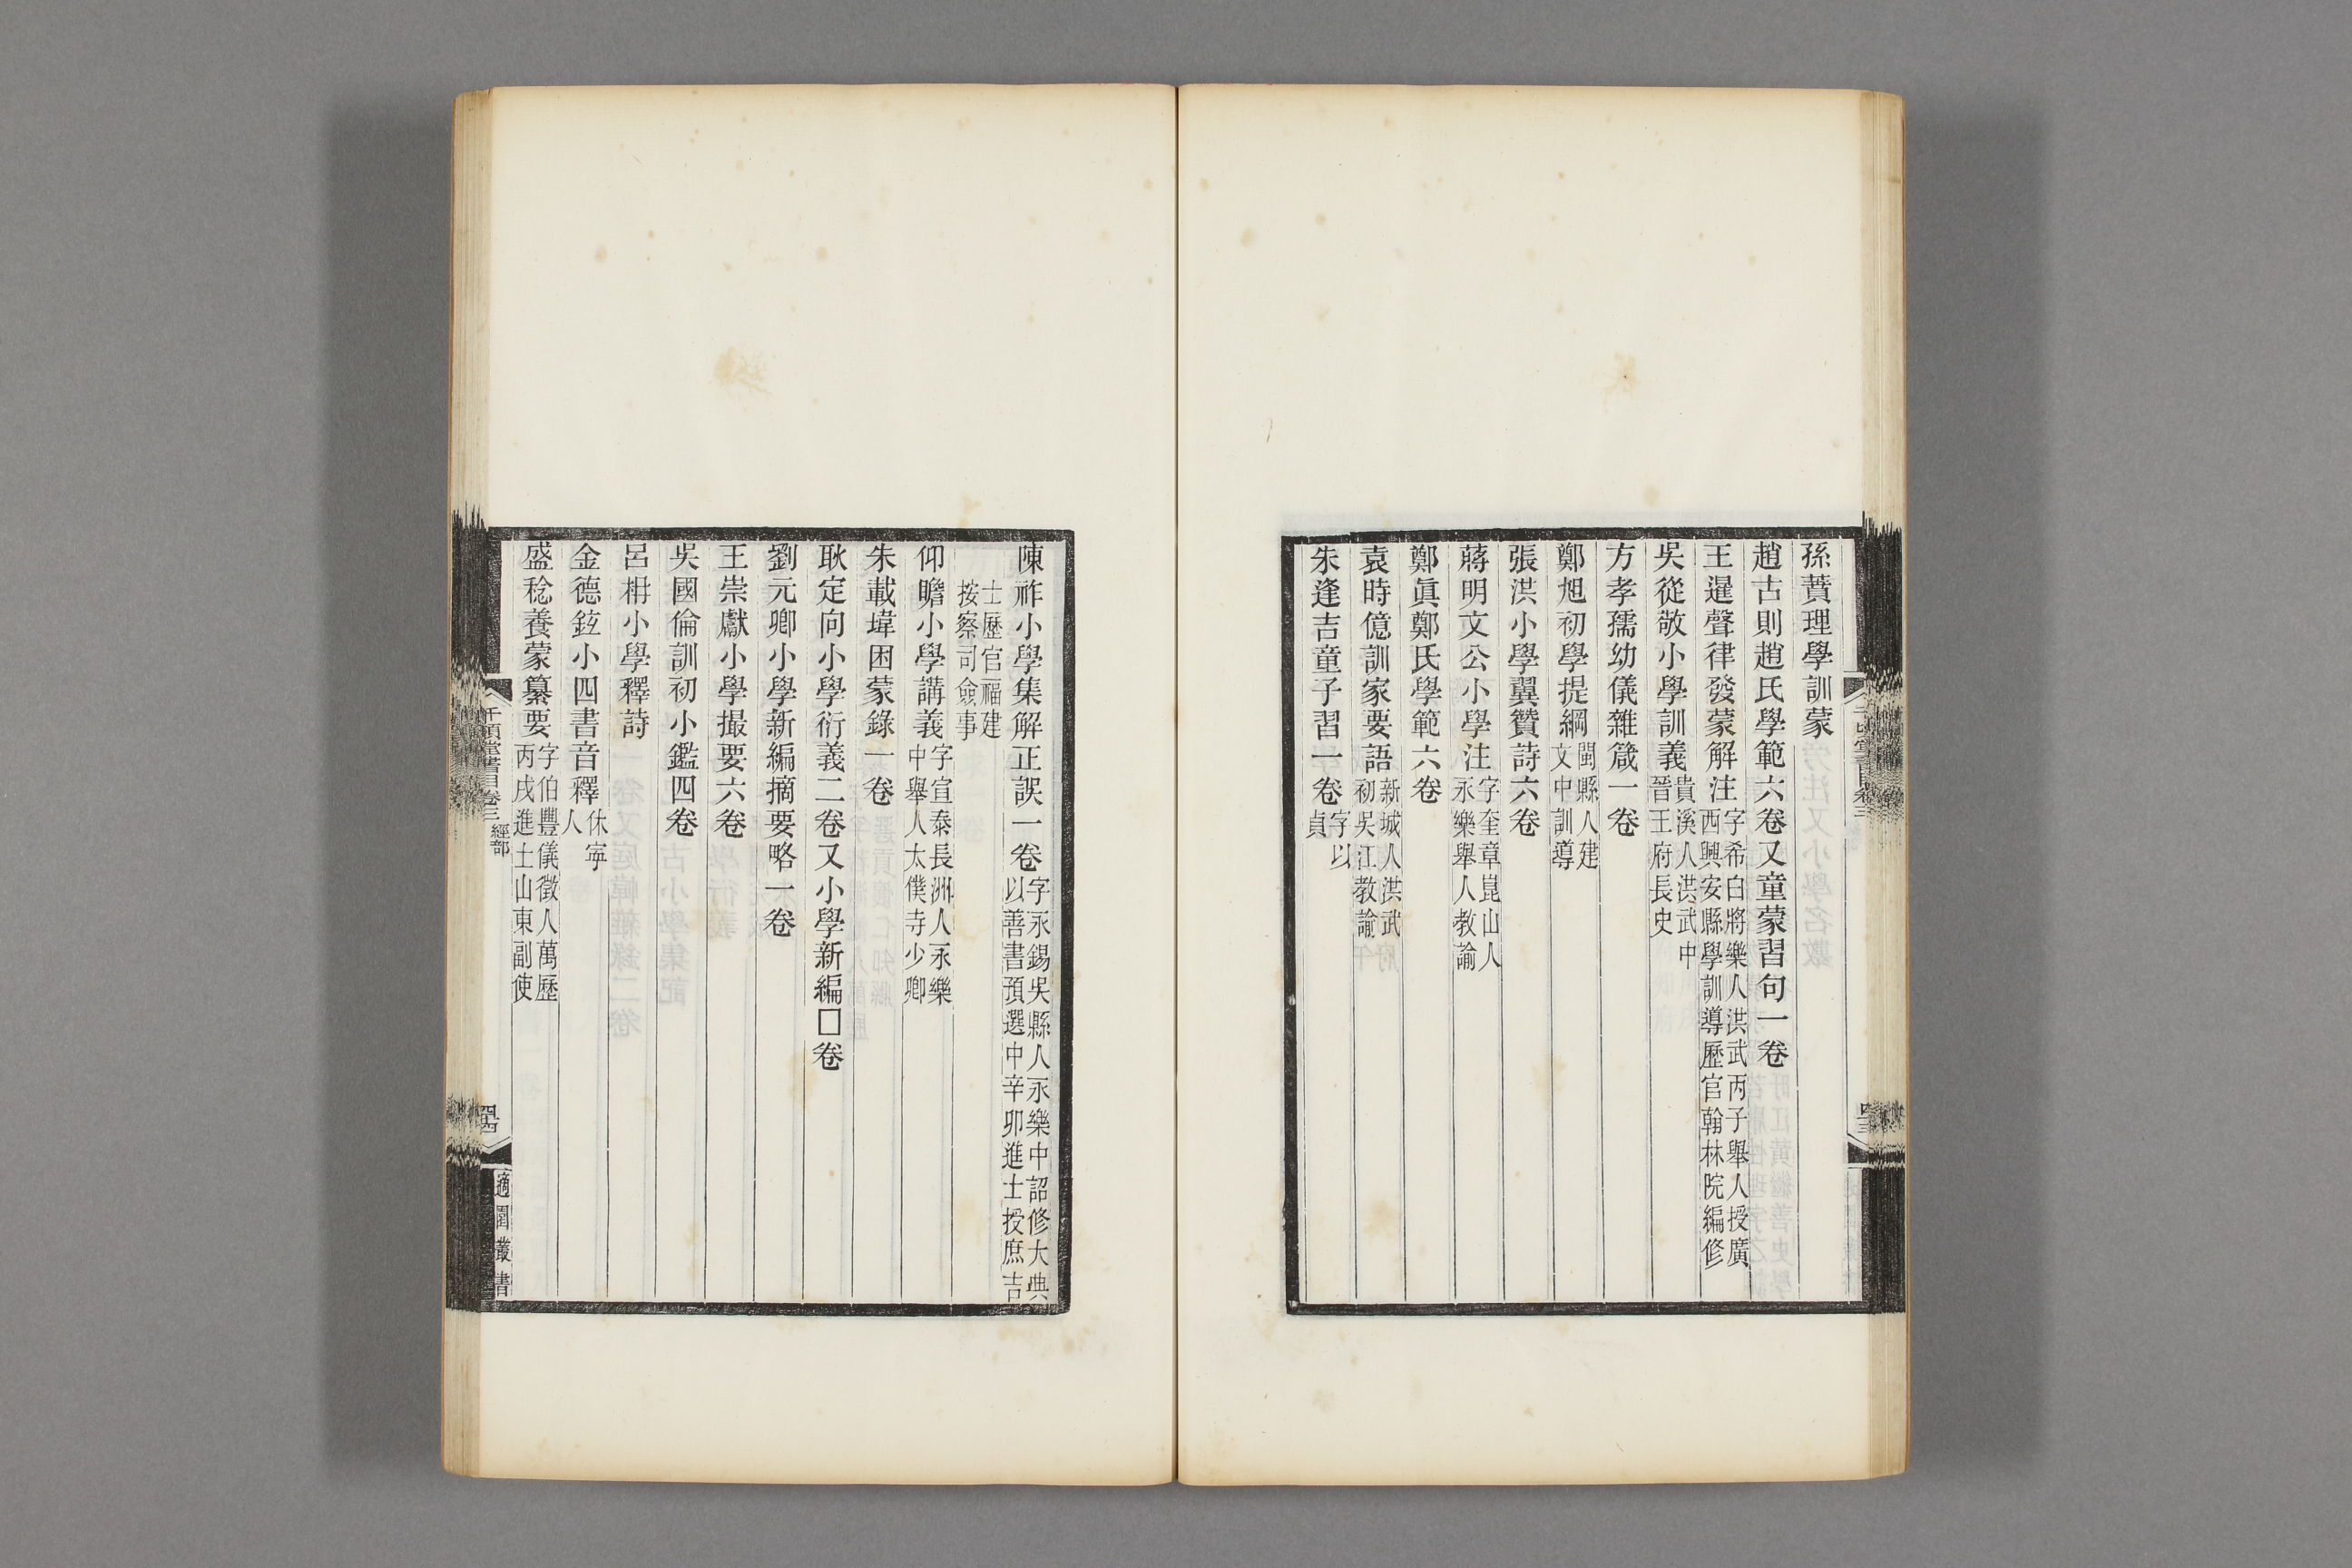 孫蕡理學訓蒙
趙古則趙氏學範六卷又童蒙習句一卷
王暹聲律發蒙解注字希白將樂人洪武丙子舉人授廣西興安縣學訓導歷官翰林院編修
吳從敬小學訓義貴溪人洪武中晉王府長史
方孝孺幼儀雜箴一卷
鄭旭初學提綱閩縣人建文中訓導
張洪小學翼贊詩六卷
蔣明文公小學注字奎章崑山人永樂舉人教諭
鄭眞鄭氏學範六卷
袁時億訓家要語新城人洪武初吳江教諭
朱逢吉童子習一卷字以貞
陳祚小學集解正誤一卷字永錫吳縣人永樂中詔修大典以善書預選中辛卯進士授庶吉
士歷官福建按察司僉事
仰瞻小學講義字宣泰長洲人永樂中舉人太僕寺少卿
朱載堉困蒙錄一卷
耿定向小學衍義二卷又小學新編□卷
劉元卿小學新編摘要略一卷
王崇獻小學撮要六卷
吳國倫訓初小鑑四卷
呂柟小學釋詩
金德鉉小四書音釋休寧人
盛稔養蒙纂要字伯豐儀徵人萬歷丙戌進士山東副使
千頃堂書目卷三 經部
四十四
適園叢書